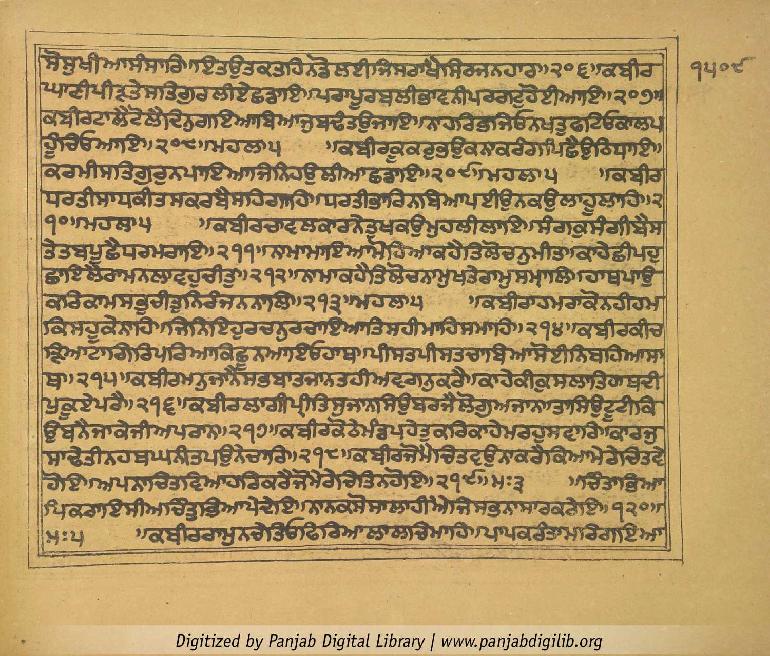 ਸੋਸੁਖੀਆਸੰਸਾਰਿ॥ਇਤਉਤਕਤਹਿਨਡੋਲਈਜਿਸਰਾਖੈਸਿਰਜਨਹਾਰ॥੨੦੬॥ਕਬੀਰ
ਘਾਣੀਪੀੜਤੇਸਤਿਗੁਰਲੀਏਛਡਾਇ॥ਪਰਾਪੂਰਬਲੀਭਾਵਨੀਪਰਗਟੁਹੋਈਆਇ॥੨੦੭॥
ਕਬੀਰਟਾਲੈਟੋਲੈਦਿਨੁਗਇਆਬਿਆਜੁਬਢੰਤਉਜਾਇ॥ਨਾਹਰਿਭਜਿਓਨਖਤੁਫਟਿਓਕਾਲਪ
ਹੂੰਚਿਓਆਇ॥੨੦੮॥ਮਹਲਾ੫ ॥ਕਬੀਰਕੂਕਰੁਭਉਕਨਾਕਰੰਗਪਿਛੈਉਠਿਧਾਇ॥
ਕਰਮੀਸਤਿਗੁਰੁਨਪਾਇਆਜਿਨਿਹਉਲੀਆਛਡਾਇ॥੨੦੯॥ਮਹਲਾ੫ ॥ਕਬੀਰ
ਧਰਤੀਸਾਧਕੀਤਸਕਰਬੈਸਹਿਗਾਹਿ॥ਧਰਤੀਭਾਰਿਨਬਿਆਪਈਉਨਕਉਲਾਹੂਲਾਹਿ॥੨
੧੦॥ਮਹਲਾ੫ ॥ਕਬੀਰਚਾਵਲਕਾਰਨੇਤੁਖਕਉਮੁਹਲੀਲਾਇ॥ਸੰਗਕੁਸੰਗੀਬੈਸ
ਤੇਤਬਪੂਛੈਧਰਮਰਾਇ॥੨੧੧॥ਨਾਮਾਮਾਇਆਮੋਹਿਆਕਹੈਤਿਲੋਚਨੁਮੀਤ॥ਕਾਹੇਛੀਪਹੁ
ਛਾਇਲੈਰਾਮਨਲਾਵਹੁਚੀਤੁ॥੨੧੨॥ਨਾਮਾਕਹੈਤਿਲੋਚਨਾਮੁਖਤੇਰਾਮੁਸਮ੍ਹਾਲਿ॥ਹਾਥਪਾਉ
ਕਰਿਕਾਮਸਭੁਚੀਤੁਨਿਰੰਜਨਨਾਲਿ॥੨੧੩॥ਮਹਲਾ੫ ॥ਕਬੀਰਾਹਮਰਾਕੋਨਹੀਹਮ
ਕਿਸਹੂਕੇਨਾਹਿ॥ਜਿਨਿਇਹੁਰਚਨੁਰਚਾਇਆਤਿਸਹੀਮਾਹਿਸਮਾਹਿ॥੨੧੪॥ਕਬੀਰਕੀਚ
ੜਿਆਟਾਗਿਰਿਪਰਿਆਕਿਛੂਨਆਇਓਹਾਥ॥ਪੀਸਤਪੀਸਤਚਾਬਿਆਸੋਈਨਿਬਹਿਆਸਾ
ਥ॥੨੧੫॥ਕਬੀਰਮਨੁਜਾਨੈਸਭਬਾਤਜਾਨਤਹੀਅਵਗਨੁਕਰੈ॥ਕਾਹੇਕੀਕੁਸਲਾਤਿਹਾਥਦੀ
ਪੁਕੂਏਪਰੈ॥੨੧੬॥ਕਬੀਰਲਾਗੀਪ੍ਰੀਤਿਸੁਜਾਨਸਿਉਬਰਜੈਲੋਗੁਅਜਾਨ॥ਤਾਸਿਉਟੂਟੀਕਿ
ਉਬਨੈਜਾਕੇਜੀਅਪਰਾਨ॥੨੧੭॥ਕਬੀਰਕੋਠੇਮੰਡਪਹੇਤੁਕਰਿਕਾਹੇਮਰਹੁਸਵਾਰਿ॥ਕਾਰਜੁ
ਸਾਢੇਤੀਨਹਥਘਨੀਤਪਉਨੇਚਾਰਿ॥੨੧੮॥ਕਬੀਰਜੋਮੈਚਿਤਵਉਨਾਕਰੈਕਿਆਮੇਰੇਚਿਤਵੇ
ਹੋਇ॥ਅਪਨਾਚਿਤਵਿਆਹਰਿਕਰੈਜੋਮੇਰੇਚਿਤਿਨਹੋਇ॥੨੧੯॥ਮਃ੩ ॥ਚਿੰਤਾਭਿਆ
ਪਿਕਰਾਇਸੀਅਚਿੰਤੁਭਿਆਪੇਦੇਇ॥ਨਾਨਕਸੋਸਾਲਾਹੀਐਜਿਸਭਨਾਸਾਰਕਰੇਇ॥੧੨੦॥
ਮਃ੫ ॥ਕਬੀਰਰਾਮੁਨਚੇਤਿਓਫਿਰਿਆਲਾਲਚਮਾਹਿ॥ਪਾਪਕਰੰਤਾਮਰਿਗਇਆ
੧੫੦੯
Digitized by Panjab Digital Library | www.panjabdigilib.org